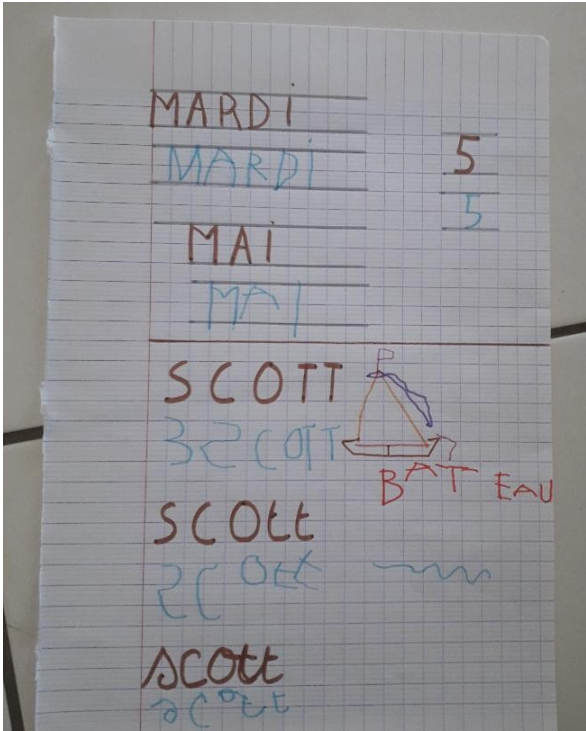 MARDi
MARDi
5
5
MAi
MAI
SCOTT
SCOTT
BATEAU
SCOtt
SCOtt
scott
scott